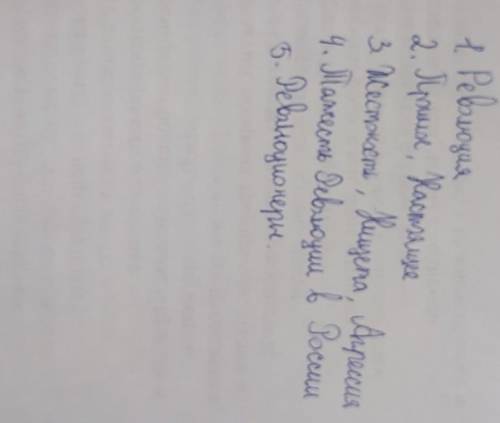 1. Революция
2. Прошлое, Настоящее
3. Жестокость, Нищета, Агрессия
4. Тяжесть Революции в России
5. Революционеры.